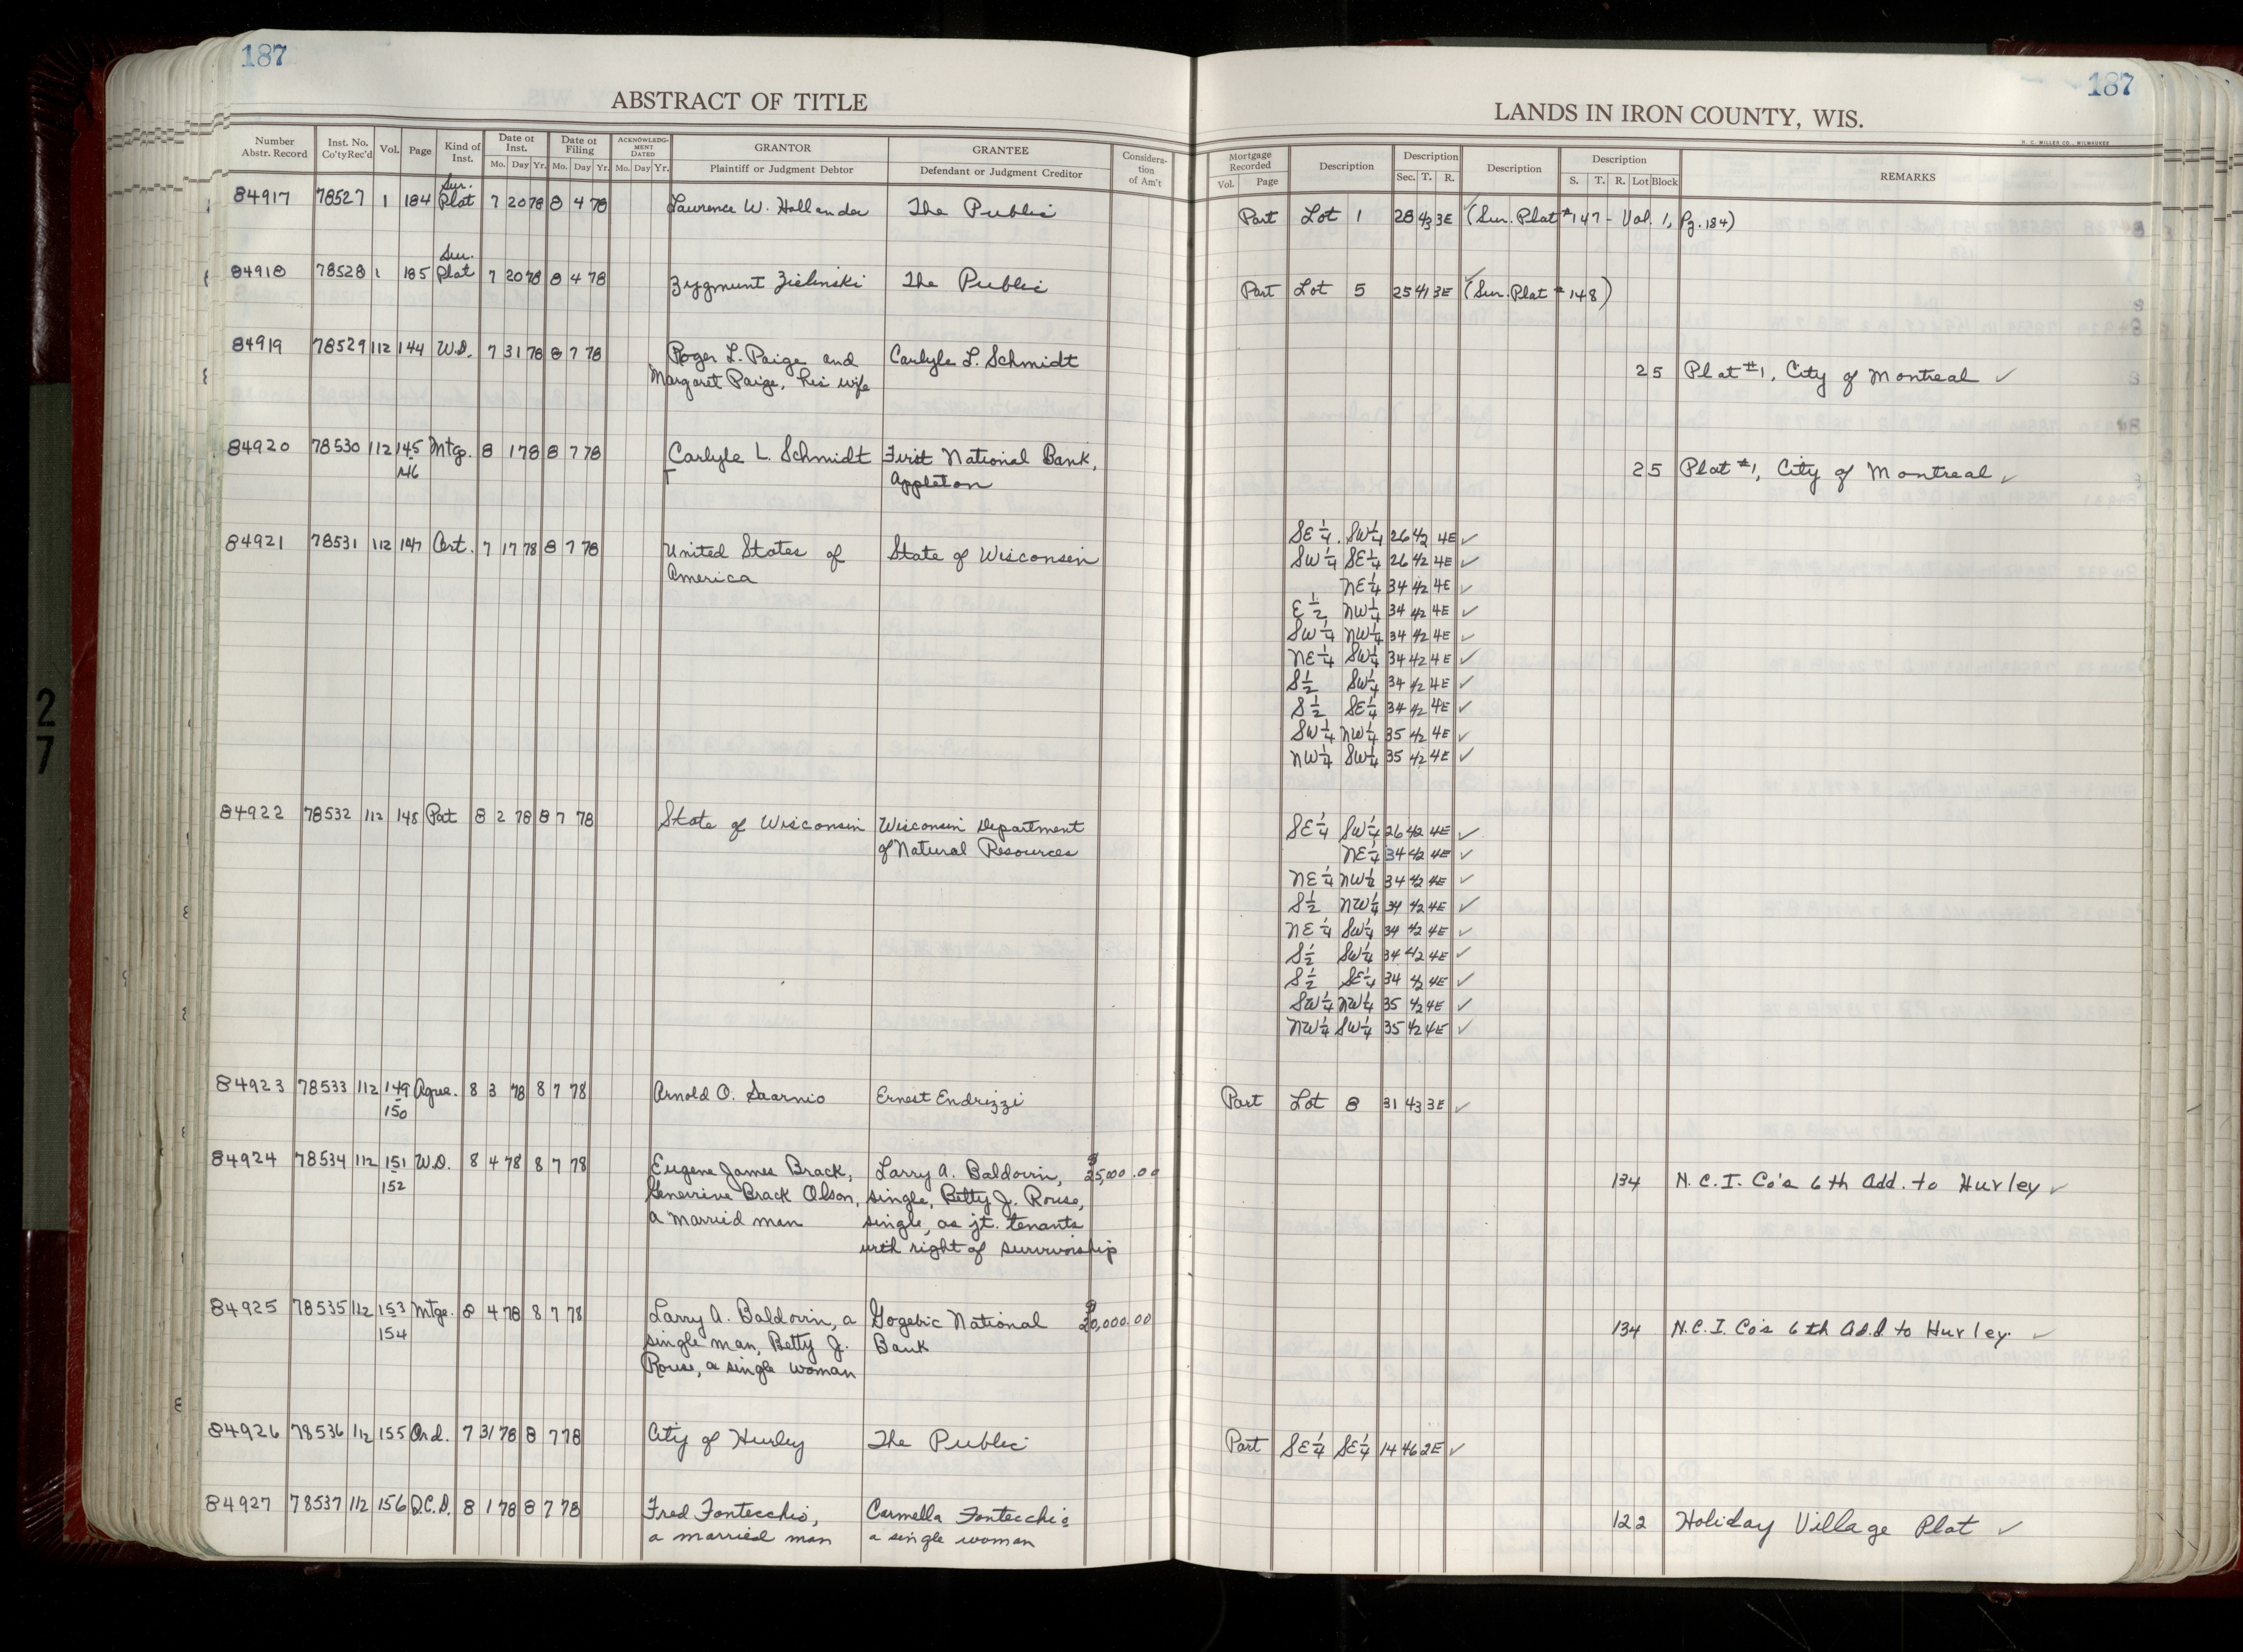 187
187
ABSTRACT OF TITLE
LANDS IN IRON COUNTY, WIS.
H. C. MILLER CO., MILWAUKEE
Number Abstr. Record | Inst. No. Co'ty Rec'd | Vol. | Page | Kind of Inst. | Date of Inst. Mo. Day Yr. | Date of Filing Mo. Day Yr. | ACKNOWLEDGMENT DATED Mo. Day Yr. | GRANTOR Plaintiff or Judgment Debtor | GRANTEE Defendant or Judgment Creditor | Consideration of Am't | Mortgage Recorded Vol. Page | Description | Description Sec. T. R. | Description | Description S. T. R. Lot Block | REMARKS
Sur.
84917 78527 1 184 Plat 7 20 78 8 4 78 Lawrence W. Hollander The Public Part Lot 1 28 43 3E (Sur. Plat #147 - Vol. 1, Pg. 184)
Sur.
84918 78528 1 185 Plat 7 20 78 8 4 78 Zygmunt Zielinski The Public Part Lot 5 25 41 3E (Sur. Plat #148)
84919 78529 112 144 W.D. 7 31 78 8 7 78 Roger L. Paige and Carlyle L. Schmidt 25 Plat #1, City of Montreal ✓
Margaret Paige, his wife
84920 78530 112 145 Mtg. 8 1 78 8 7 78 Carlyle L. Schmidt First National Bank, 25 Plat #1, City of Montreal ✓
146 Appleton
SE 1/4 SW 1/4 26 42 4E ✓
84921 78531 112 147 Cert. 7 17 78 8 7 78 United States of State of Wisconsin SW 1/4 SE 1/4 26 42 4E ✓
America NE 1/4 34 42 4E ✓
E 1/2 NW 1/4 34 42 4E ✓
SW 1/4 NW 1/4 34 42 4E ✓
NE 1/4 SW 1/4 34 42 4E ✓
S 1/2 SW 1/4 34 42 4E ✓
S 1/2 SE 1/4 34 42 4E ✓
SW 1/4 NW 1/4 35 42 4E ✓
NW 1/4 SW 1/4 35 42 4E ✓
84922 78532 112 148 Pat 8 2 78 8 7 78 State of Wisconsin Wisconsin Department SE 1/4 SW 1/4 26 42 4E ✓
of Natural Resources NE 1/4 34 42 4E ✓
NE 1/4 NW 1/4 34 42 4E ✓
S 1/2 NW 1/4 34 42 4E ✓
NE 1/4 SW 1/4 34 42 4E ✓
S 1/2 SW 1/4 34 42 4E ✓
S 1/2 SE 1/4 34 42 4E ✓
SW 1/4 NW 1/4 35 42 4E ✓
NW 1/4 SW 1/4 35 42 4E ✓
84923 78533 112 149 Agree. 8 3 78 8 7 78 Arnold O. Saarnio Ernest Endrizzi Part Lot 8 31 43 3E ✓
150
84924 78534 112 151 W.D. 8 4 78 8 7 78 Eugene James Brack, Larry A. Baldovin, $25,000.00 134 N.C.I. Co's 6th Add. to Hurley ✓
152 Genevieve Brack Olson, single, Betty J. Rouse,
a married man single, as jt. tenants
with right of survivorship
84925 78535 112 153 Mtge. 8 4 78 8 7 78 Larry A. Baldovin, a Gogebic National $20,000.00 134 N.C.I. Co's 6th Add to Hurley. ✓
154 single man, Betty J. Bank
Rouse, a single woman
84926 78536 112 155 Ord. 7 31 78 8 7 78 City of Hurley The Public Part SE 1/4 SE 1/4 14 46 2E ✓
84927 78537 112 156 Q.C.D. 8 1 78 8 7 78 Fred Fontecchio, Carmella Fontecchio 122 Holiday Village Plat ✓
a married man a single woman
27